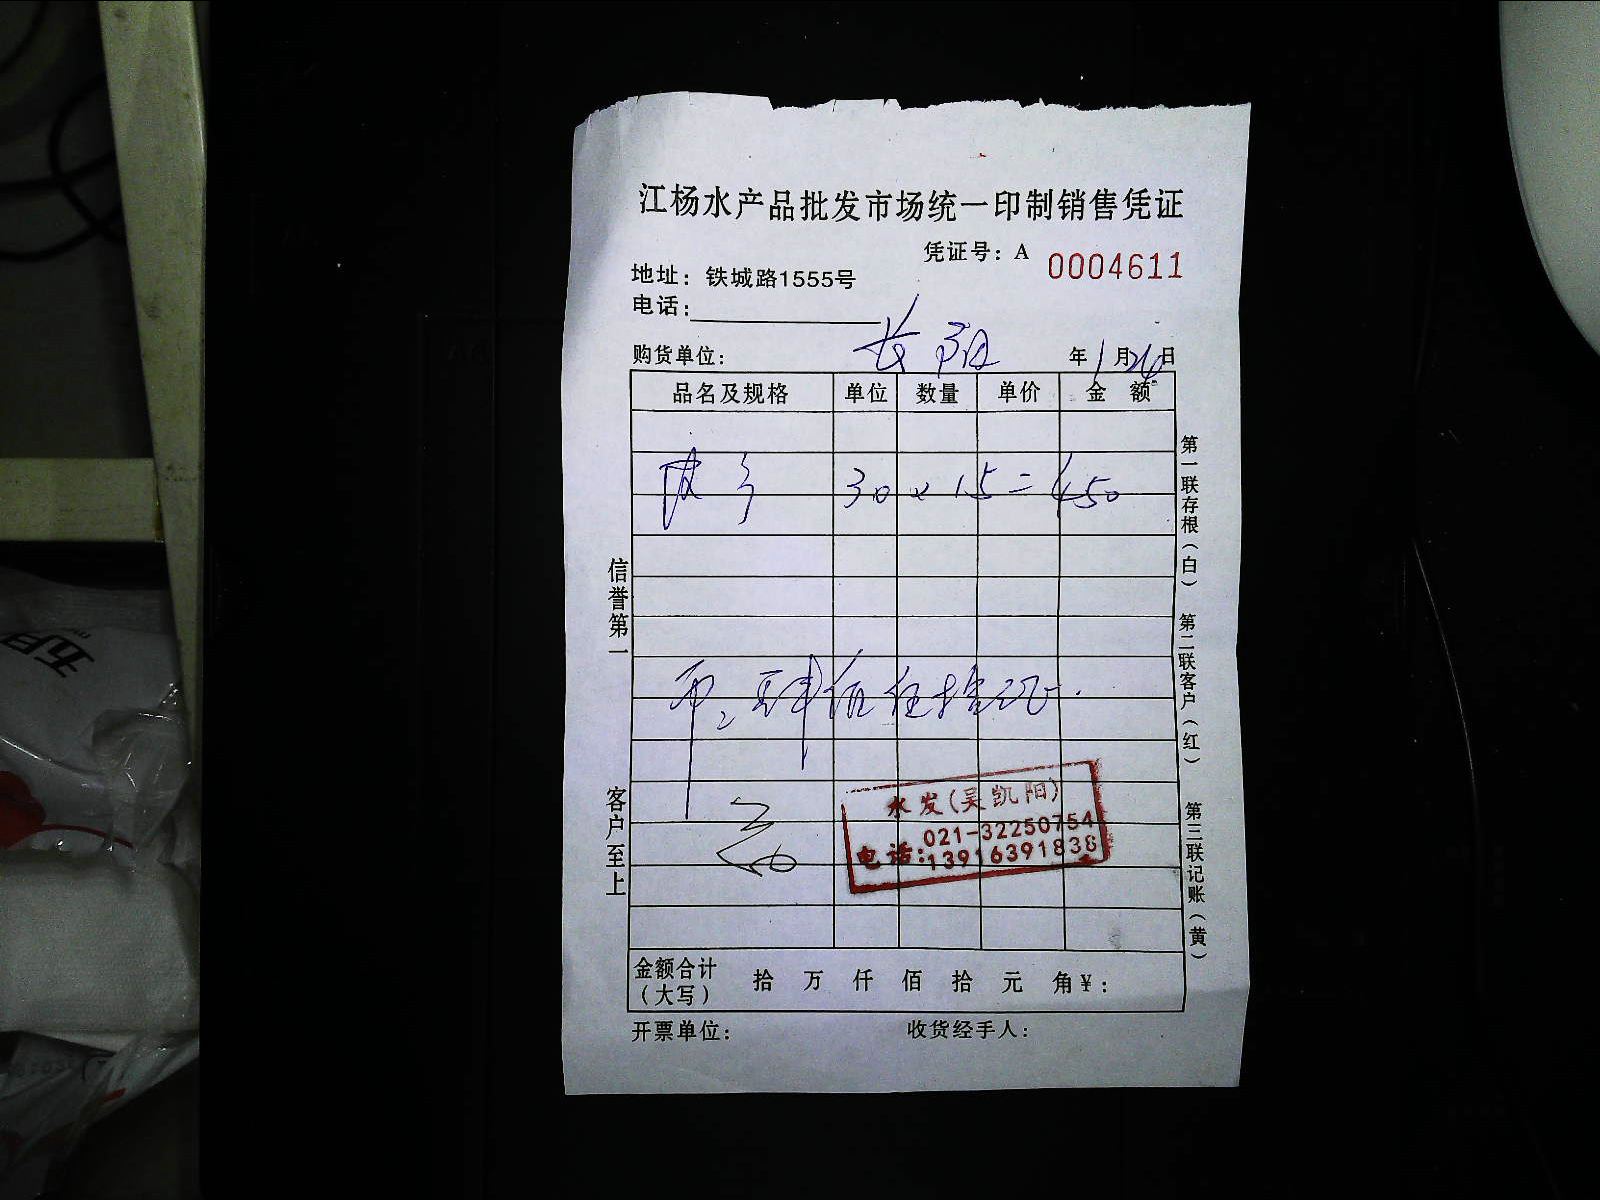 江杨水产品批发市场统一印制销售凭证
凭证号：A 0004611
地址：铁城路1555号
电话：
购货单位： 长阳 年1月24日
品名及规格 单位 数量 单价 金额
30 x 15 = 450
肆佰伍拾元
水发(吴凯阳)
电话：021-32250754
13916391838
金额合计（大写） 拾 万 仟 佰 拾 元 角 ¥：
开票单位： 收货经手人：
信誉第一
客户至上
第一联存根（白）
第二联客户（红）
第三联记账（黄）